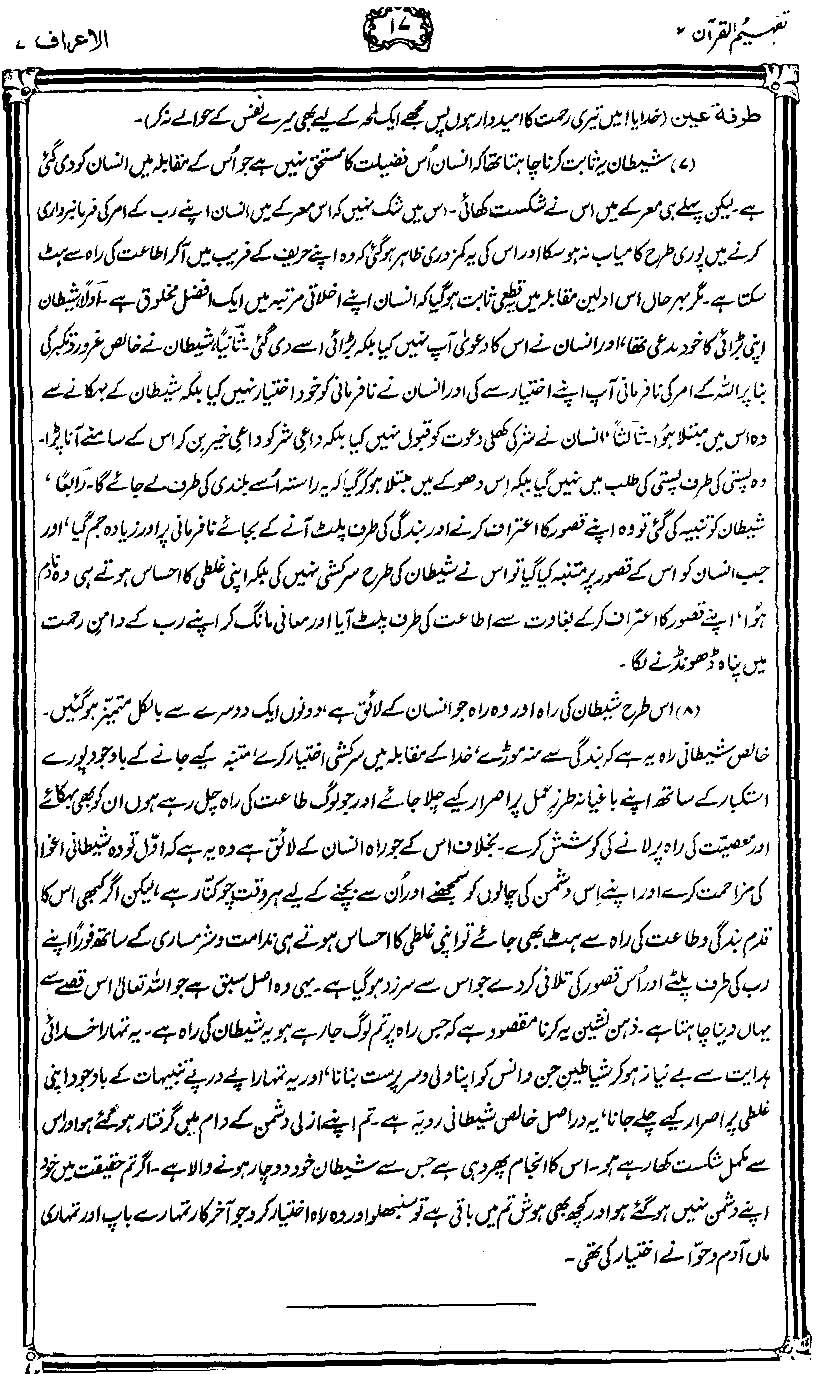 تفہیم القرآن ۲
۱۷
الاعراف ۷
طرفۃ عین (خدایا! میں تیری رحمت کا امیدوار ہوں پس مجھے ایک لمحہ کے لیے بھی میرے نفس کے حوالے نہ کر)۔
(۷) شیطان یہ ثابت کرنا چاہتا تھا کہ انسان اُس فضیلت کا مستحق نہیں ہے جو اُس کے مقابلہ میں انسان کو دی گئی
ہے۔ لیکن پہلے ہی معرکے میں اس نے شکست کھائی۔ اس میں شک نہیں کہ اس معرکے میں انسان اپنے رب کے امر کی فرمانبرداری
کرنے میں پوری طرح کامیاب نہ ہو سکا اور اس کی یہ کمزوری ظاہر ہو گئی کہ وہ اپنے حریف کے فریب میں آ کر اطاعت کی راہ سے ہٹ
سکتا ہے۔ مگر بہر حال اس اولین مقابلہ میں قطعی ثابت ہو گیا کہ انسان اپنے اخلاقی مرتبہ میں ایک افضل مخلوق ہے۔ اوّلاً شیطان
اپنی بڑائی کا خود مدعی تھا، اور انسان نے اس کا دعویٰ آپ نہیں کیا بلکہ بڑائی اسے دی گئی۔ ثانیاً، شیطان نے خالص غرور و تکبر کی
بنا پر اللہ کے امر کی نافرمانی آپ اپنے اختیار سے کی اور انسان نے نافرمانی کو خود اختیار نہیں کیا بلکہ شیطان کے بہکانے سے
وہ اس میں مبتلا ہوُا۔ ثالثاً، انسان نے شر کی کھلی دعوت کو قبول نہیں کیا بلکہ داعیِ شر کو داعیِ خیر بن کر اس کے سامنے آنا پڑا۔
وہ پستی کی طرف پستی کی طلب میں نہیں گیا بلکہ اِس دھوکے میں مبتلا ہو کر گیا کہ یہ راستہ اُسے بلندی کی طرف لے جائے گا۔ رابعًا،
شیطان کو تنبیہ کی گئی تو وہ اپنے قصور کا اعتراف کرنے اور بندگی کی طرف پلٹ آنے کے بجائے نافرمانی پر اور زیادہ جم گیا، اور
جب انسان کو اس کے قصور پر متنبہ کیا گیا تو اس نے شیطان کی طرح سرکشی نہیں کی بلکہ اپنی غلطی کا احساس ہوتے ہی وہ نادم
ہوُا، اپنے قصور کا اعتراف کر کے بغاوت سے اطاعت کی طرف پلٹ آیا اور معافی مانگ کر اپنے رب کے دامنِ رحمت
میں پناہ ڈھونڈنے لگا۔
(۸) اس طرح شیطان کی راہ اور وہ راہ جو انسان کے لائق ہے، دونوں ایک دوسرے سے بالکل متمیّز ہو گئیں۔
خالص شیطانی راہ یہ ہے کہ بندگی سے منہ موڑے، خدا کے مقابلہ میں سرکشی اختیار کرے، متنبہ کیے جانے کے باوجود پورے
استکبار کے ساتھ اپنے باغیانہ طرزِ عمل پر اصرار کیے چلا جائے اور جو لوگ طاعت کی راہ چل رہے ہوں ان کو بھی بہکائے
اور معصیّت کی راہ پر لانے کی کوشش کرے۔ بخلاف اس کے جو راہ انسان کے لائق ہے وہ یہ ہے کہ اوّل تو وہ شیطانی اغوا
کی مزاحمت کرے اور اپنے اِس دشمن کی چالوں کو سمجھنے اور اُن سے بچنے کے لیے ہر وقت چوکنّا رہے، لیکن اگر کبھی اس کا
قدم بندگی و طاعت کی راہ سے ہٹ بھی جائے تو اپنی غلطی کا احساس ہوتے ہی ندامت و شرمساری کے ساتھ فوراً اپنے
رب کی طرف پلٹے اور اُس قصور کی تلافی کر دے جو اس سے سرزد ہو گیا ہے۔ یہی وہ اصل سبق ہے جو اللہ تعالیٰ اس قصے سے
یہاں دینا چاہتا ہے۔ ذہن نشین یہ کرنا مقصود ہے کہ جس راہ پر تم لوگ جا رہے ہو یہ شیطان کی راہ ہے۔ یہ تمہارا خدائی
ہدایت سے بے نیاز ہو کر شیاطینِ جن و انس کو اپنا ولی و سرپرست بنانا، اور یہ تمہارا پے در پے تنبیہات کے باوجود اپنی
غلطی پر اصرار کیے چلے جانا، یہ دراصل خالص شیطانی رویّہ ہے۔ تم اپنے ازلی دشمن کے دام میں گرفتار ہو گئے ہو اور اس
سے مکمل شکست کھا رہے ہو۔ اس کا انجام پھر وہی ہے جس سے شیطان خود دوچار ہونے والا ہے۔ اگر تم حقیقت میں خود
اپنے دشمن نہیں ہو گئے ہو اور کچھ بھی ہوش تم میں باقی ہے تو سنبھلو اور وہ راہ اختیار کرو جو آخر کار تمہارے باپ اور تمہاری
ماں آدم و حوّا نے اختیار کی تھی۔